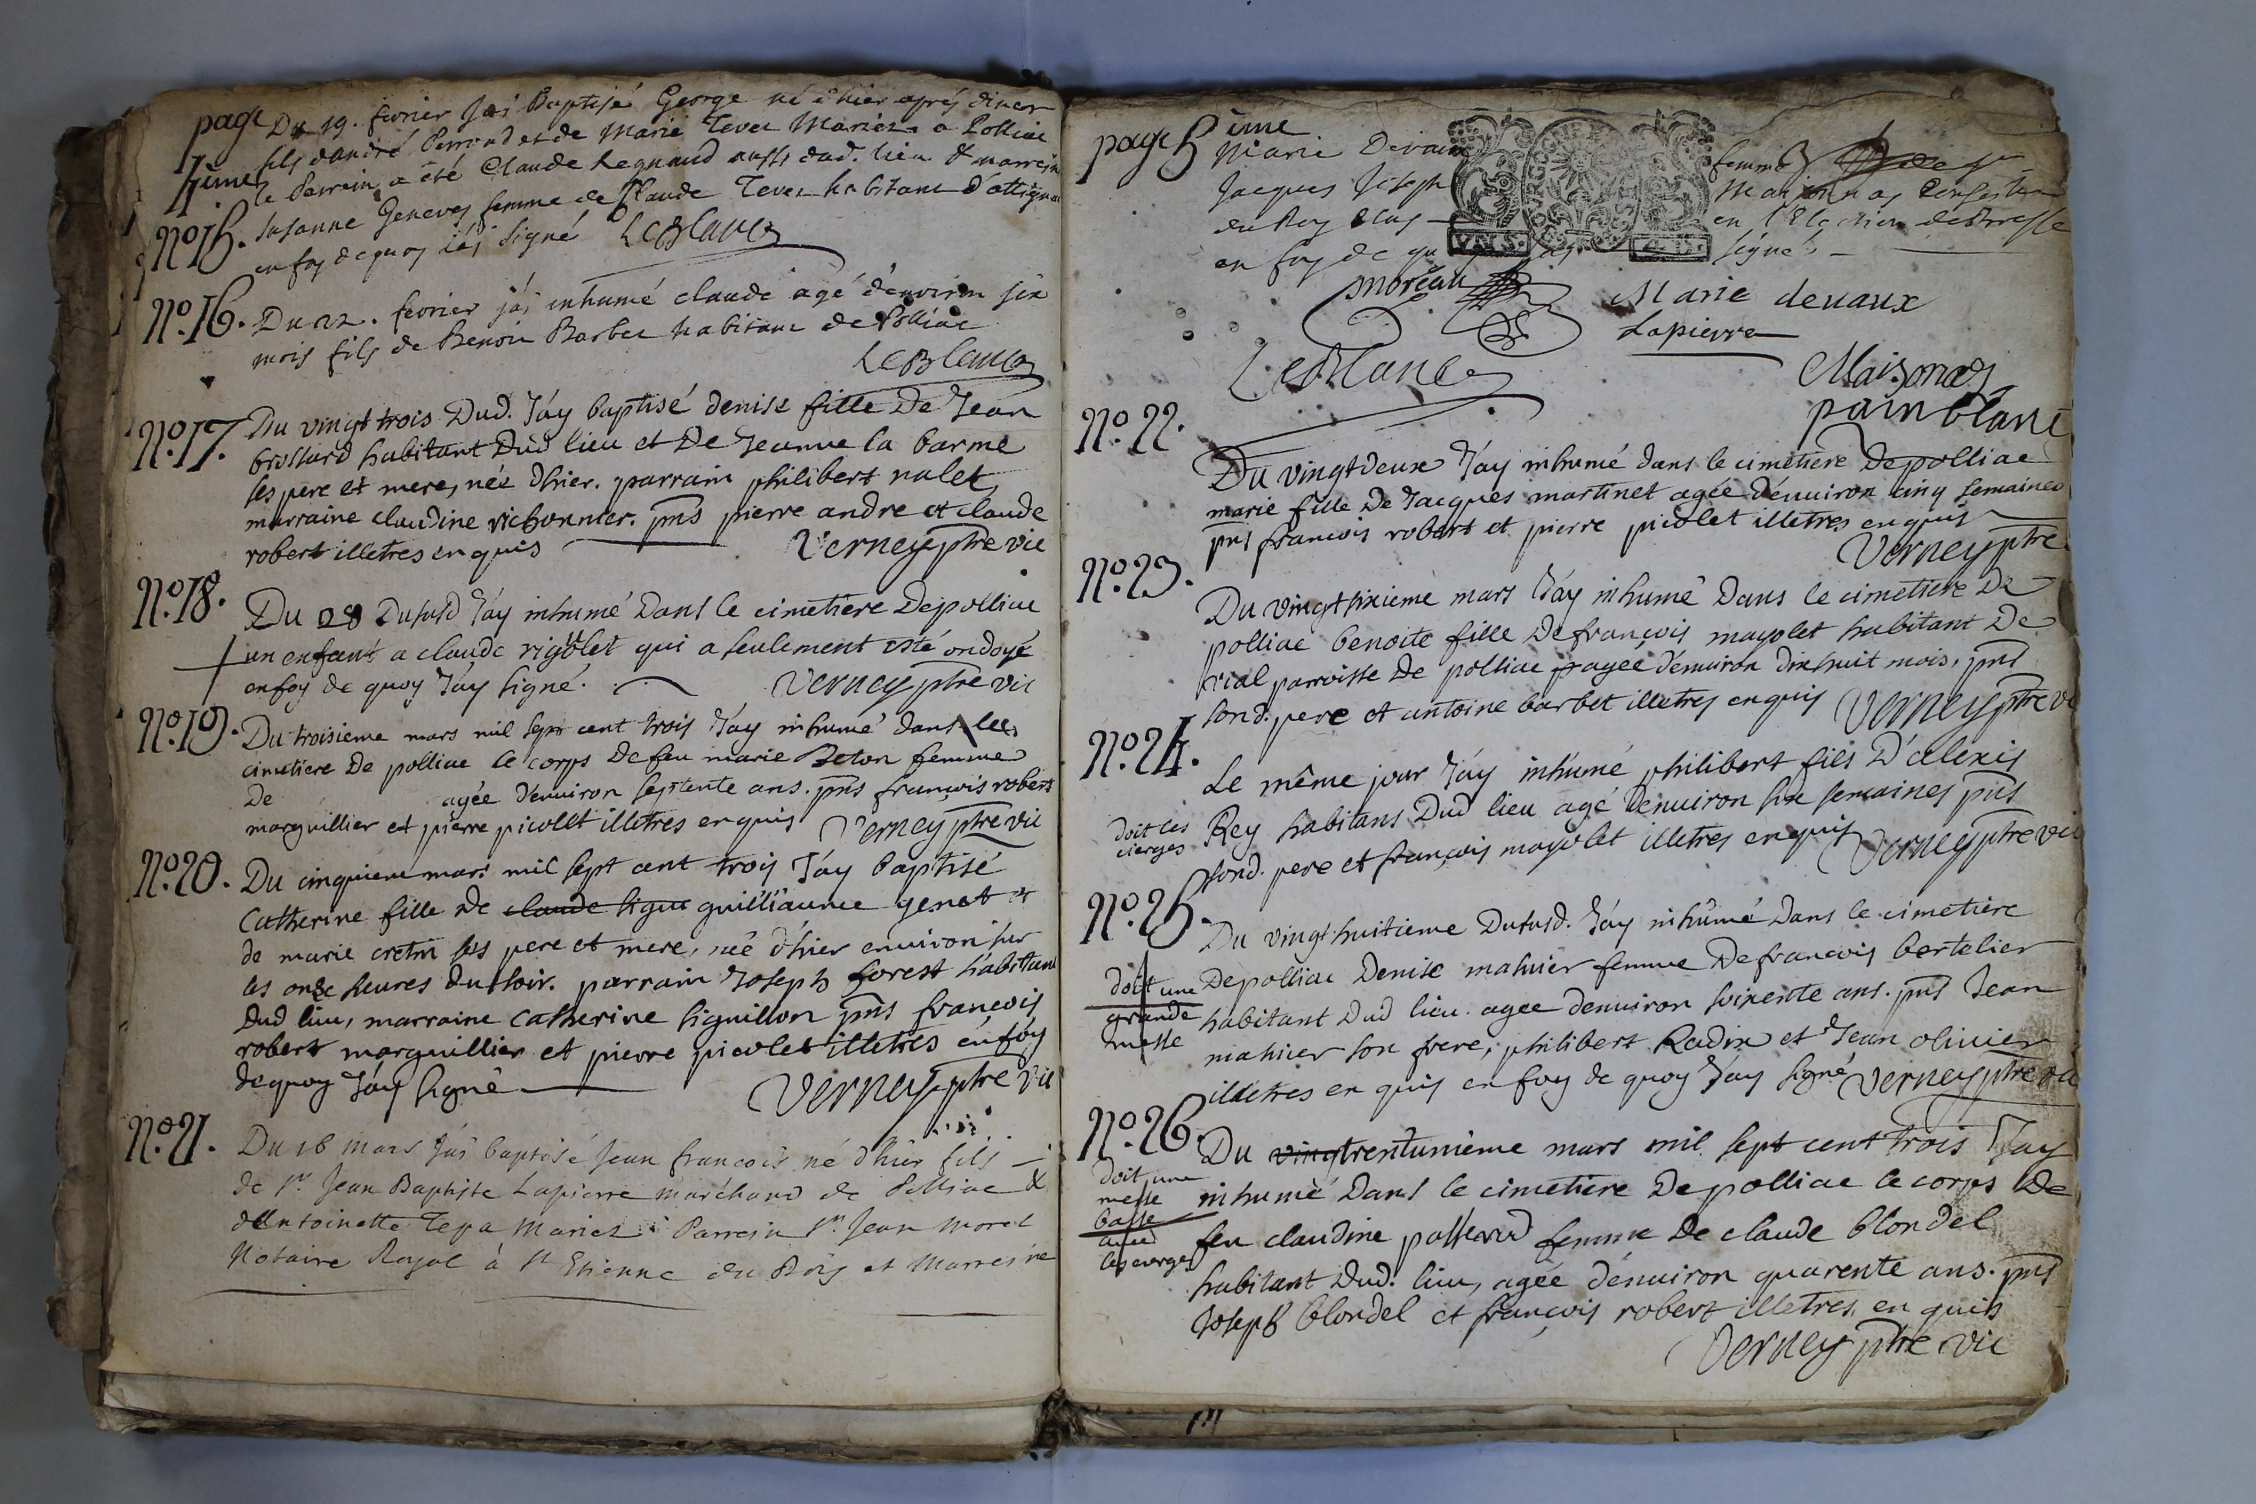 page 4ème
Du 19. fevrier jái Baptisé George né d'hier aprés diner
fils d'andré Perraud et de Marie Tevet Mariez a Polliac
le Parrain a été Claude Regnaud aussi dud. lieu & marreine
No 15. Susanne Genevey femme de Claude Tevet habitant d'attignat
en foy de quoy jái signé LeBlanc
No 16. Du 22. fevrier jái inhumé claude agé d'environ six
mois fils de Benoit Barbet habitant de Polliac
LeBlanc
No 17. Du vingt trois Dud. Jáy baptisé denise fille De Jean
brossard habitant Dud lieu et De Jeanne la barme
ses pere et mere, née d'hier. parrain philibert nalet
marraine claudine richonnier. pns pierre andre et claude
robert illetres enquis Verney ptre vic
No 18. Du 28 Dususd Jáy inhumé Dans le cimetiere Depolliac
un enfant a claude rigollet qui a seulement esté ondoyé
enfoy de quoy Jáy signé. Verney ptre vic
No 19. Du troisieme mars mil sept cent trois Jáy inhumé dans le
cimetiere De polliac le corps De feu marie Beton femme
De agée d'enuiron septente ans. pns françois robert
marguillier et pierre picollet illetres enquis Verney ptre vic
No 20. Du cinquieme mars mil sept cent trois Jáy baptisé
Catherine fille de claude ligne guilliaume genet et
de marie cretin ses pere et mere, née d'hier environ sur
les onze heures du soir. parrain Joseph forest habitant
Dud lieu, marraine Catherine siguillon pns francois
robert marguillier et pierre picolet illetres enfoy
dequoy Jáy signé Verney ptre vic
No 21. Du 16 mars jái baptisé Jean francois né d'hier fils
de Sr. Jean Baptiste Lapierre marchand de Polliac &
d'Antoinette Tepa Mariez Parrain Sr. Jean Morel
Notaire Royal à St Etienne du Bois et Marreine
page 5ème
Marie Devaux femme
Jacques Joseph Maisonnas
du Roy en l'Election de Bresse
en foy de signé
VNS.
moreau Marie deuaux
Lapierre
LeBlanc Maisonas
painblanc
No 22. Du vingtdeux Jáy inhumé dans le cimetiere Depolliac
marie fille De Jacques martinet agée d'enuiron cinq semaines
pns francois robert et pierre picolet illetres enquis
Verney ptre
No 23. Du vingt sixieme mars Jáy inhumé Dans le cimetiere De
polliac benoite fille De françois mayolet habitant De
vial parroisse De polliac agée d'enuiron dix huit mois, pns
sond. pere et antoine barbet illetres enquis Verney ptre vic
No 24. Le même jour Jáy inhumé philibert fils D'Alexis
doit les cierges
Rey habitans Dud lieu agé Denuiron six semaines pns
sond. pere et françois mayolet illetres enquis Verney ptre vic
No 25. Du vingt huitieme Dususd. Jáy inhumé Dans le cimetiere
doit une grande messe
Depolliac Denise mahuier femme De francois bertelier
habitant Dud lieu. agee denuiron soixente ans. pns Jean
mahuier son frere, philibert Radix et Jean olivier
illetres en quis en foy de quoy Jáy signé Verney ptre vic
No 26. Du vingtrentunieme mars mil sept cent trois Jay
doit une messe basse auec les cierges
inhumé Dans le cimetiere Depolliac le corps De
feu claudine passerad femme De claude blondel
habitant Dud. lieu, agée d'enuiron quarente ans. pns
Joseph blondel et françois robert illetres, en quis
Verney ptre vic